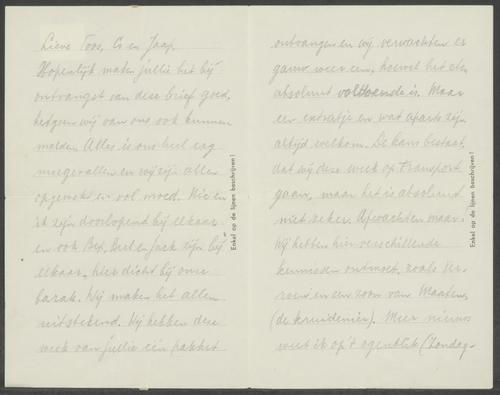 Lieve Toos, Co en Jaap,
Hopenlijk maken jullie het bij
ontvangst van deze brief goed,
hetgeen wij van ons ook kunnen
melden. Alles is ons heel erg
meegevallen en wij zijn allen
opgewekt en vol moed.
ik zijn doorlopend bij elkaar
en ook Bep, Bert en Jack zijn bij
elkaar, hier dicht bij onze
barak. Wij maken het allen
uitstekend. Wij hebben deze
week van jullie een pakket
Enkel op de lijnen beschrijven!
ontvangen en wij verwachten er
gauw weer een, hoewel het eten
absoluut voldoende is. Maar
een extratje en wat aparts zijn
altijd welkom. De kans bestaat,
dat wij deze week op transport
gaan, maar het is absoluut
niet zeker. Afwachten maar.
Wij hebben hier verschillende
kennissen ontmoet, zoals
en een zoon van Maatens,
(de kruidenier). Meer nieuws
weet ik op 't ogenblik (Zondag-
Enkel op de lijnen beschrijven!